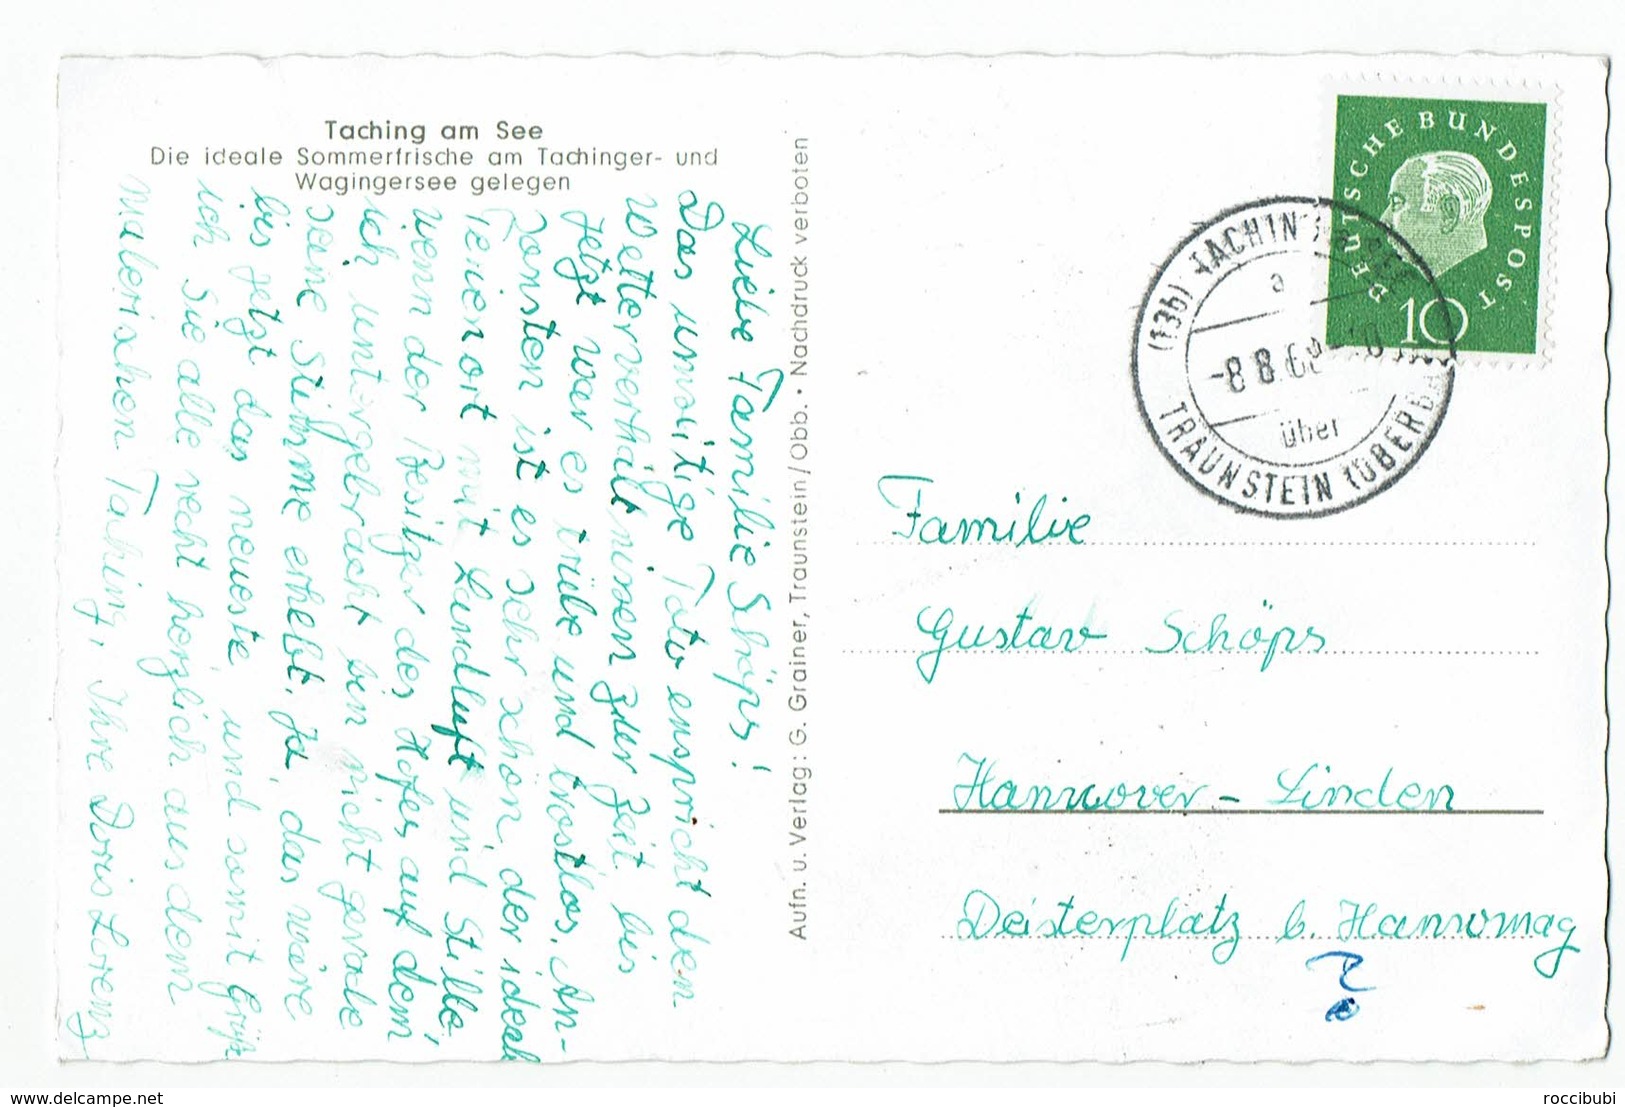 Taching am See
Die ideale Sommerfrische am Tachinger- und
Wagingersee gelegen
Liebe Familie Schöps!
Das unnötige Foto enspricht den
Wetterverhältnissen zur Zeit bis
jetzt war es trübe und trostlos. An-
sonsten ist es sehr schön, der ideal
Ferienort mit Landluft und Stille,
wenn der Besitzer des Hofes, auf dem
ich untergebracht bin nicht gerade
seine Stimme erhebt. Ja, das wäre
bis jetzt das neueste und somit grüße
ich Sie alle recht herzlich aus dem
malerischen Taching, Ihre Doris Lorenz
Aufn. u. Verlag: G. Grainer, Traunstein/Obb. • Nachdruck verboten
DEUTSCHE BUNDESPOST
10
(13b) TACHING
a
-8.8.6
über
TRAUNSTEIN (OBERB
Familie
Gustav Schöps
Hannover - Linden
Deisterplatz b. Hanomag
www.delcampe.net
roccibubi